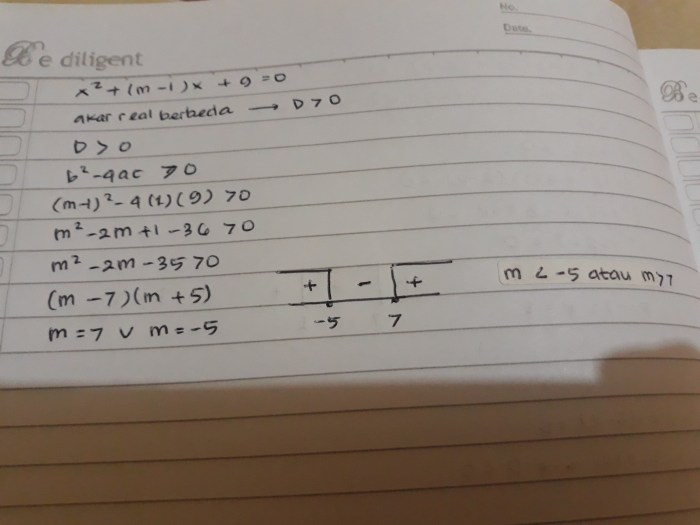 No.
Date.
Be diligent
x² + (m-1)x + 9 = 0
akar real berbeda → D > 0
D > 0
b² - 4ac > 0
(m-1)² - 4(1)(9) > 0
m² - 2m + 1 - 36 > 0
m² - 2m - 35 > 0
(m - 7)(m + 5)
+ - +
m < -5 atau m > 7
m = 7 v m = -5
-5 7
Be